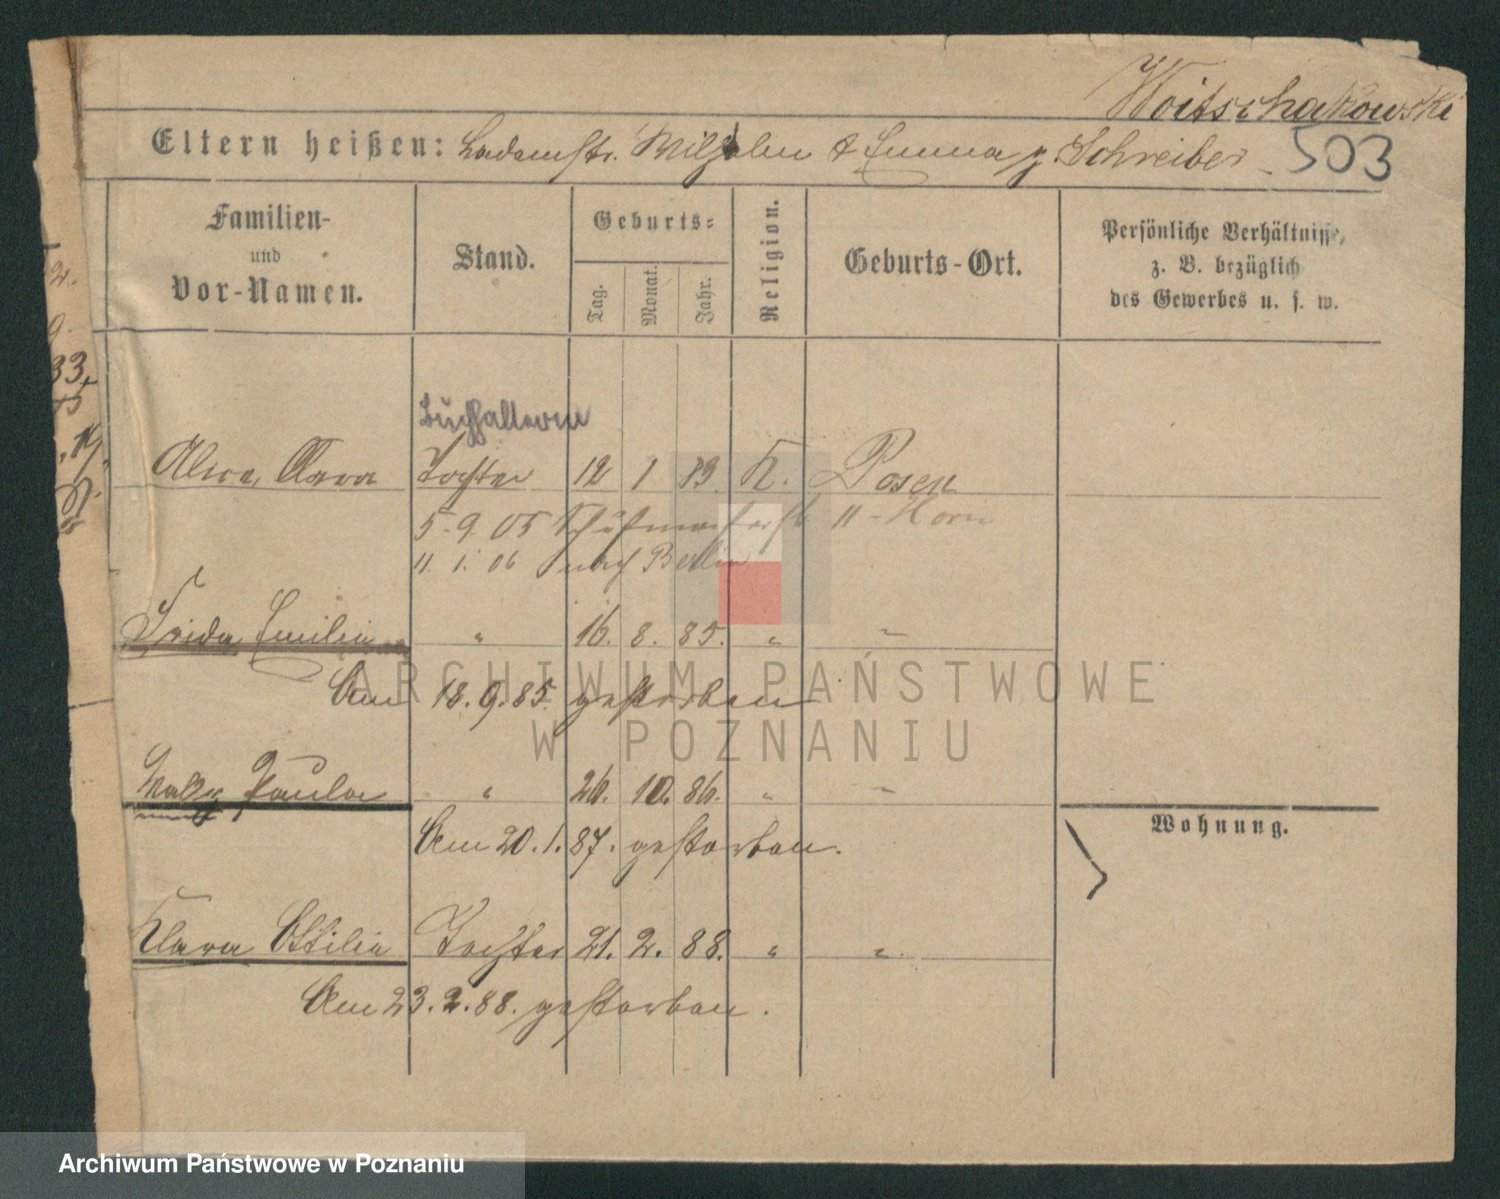 Woitschakowski
Eltern heißen: Wilhelm & Emma g. Schreiber
503
Familien- und Vor-Namen.
Stand.
Geburts-
Tag.
Monat.
Jahr.
Religion.
Geburts-Ort.
Persönliche Verhältnisse,
z. B. bezüglich
des Gewerbes u. s. w.
Buchhalterin
Clara Tochter 12 1 83 K. Posen
5. 9. 05
11. 1. 06 nach Berlin
Frida Emilie " 16. 8. 85. " "
Am 18. 9. 85. gestorben
Paula " 26. 10. 86. " "
Am 20. 1. 87. gestorben.
Wohnung.
Klara Ottilie Tochter 21. 2. 88. " "
Am 23. 2. 88. gestorben.
ARCHIWUM PAŃSTWOWE
W POZNANIU
Archiwum Państwowe w Poznaniu